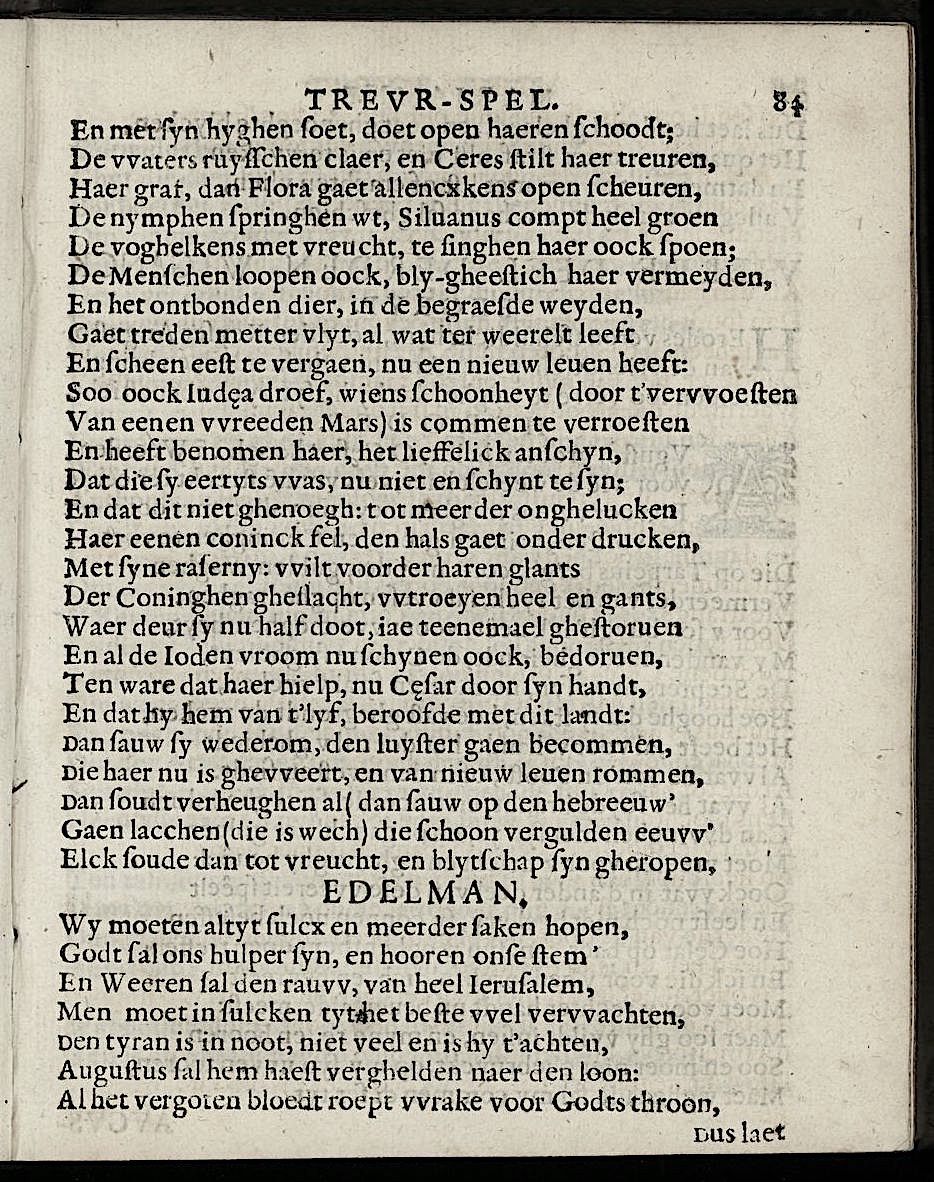 TREVR-SPEL. 84
En met ſyn hyghen ſoet, doet open haeren ſchoodt;
De vvaters ruyſſchen claer, en Ceres ſtilt haer treuren,
Haer graf, dan Flora gaet allencxkens open ſcheuren,
De nymphen ſpringhen wt, Siluanus compt heel groen
De voghelkens met vreucht, te ſinghen haer oock ſpoen;
De Menſchen loopen oock, bly-gheeſtich haer vermeyden,
En het ontbonden dier, in de begraeſde weyden,
Gaet treden metter vlyt, al wat ter weerelt leeft
En ſcheen eeſt te vergaen, nu een nieuw leuen heeft:
Soo oock Iudęa droef, wiens ſchoonheyt ( door t'vervvoeſten
Van eenen vvreeden Mars) is commen te verroeſten
En heeft benomen haer, het lieffelick anſchyn,
Dat die ſy eertyts vvas, nu niet en ſchynt te ſyn;
En dat dit niet ghenoegh: tot meerder onghelucken
Haer eenen coninck fel, den hals gaet onder drucken,
Met ſyne raſerny: vvilt voorder haren glants
Der Coninghen gheſlacht, vvtroeyen heel en gants,
Waer deur ſy nu half doot, iae teenemael gheſtoruen
En al de Ioden vroom nu ſchynen oock, bedoruen,
Ten ware dat haer hielp, nu Cęſar door ſyn handt,
En dat hy hem van t'lyf, beroofde met dit landt:
Dan ſauw ſy wederom, den luyſter gaen becommen,
Die haer nu is ghevveert, en van nieuw leuen rommen,
Dan ſoudt verheughen al( dan ſauw op den hebreeuw'
Gaen lacchen(die is wech) die ſchoon vergulden eeuvv'
Elck ſoude dan tot vreucht, en blytſchap ſyn gheropen,
EDELMAN,
Wy moeten altyt ſulcx en meerder ſaken hopen,
Godt ſal ons hulper ſyn, en hooren onſe ſtem'
En Weeren ſal den rauvv, van heel Ieruſalem,
Men moet in ſulcken tyt het beſte vvel vervvachten,
Den tyran is in noot, niet veel en is hy t'achten,
Auguſtus ſal hem haeſt verghelden naer den loon:
Al het vergoten bloedt roept vvrake voor Godts throon,
Dus laet